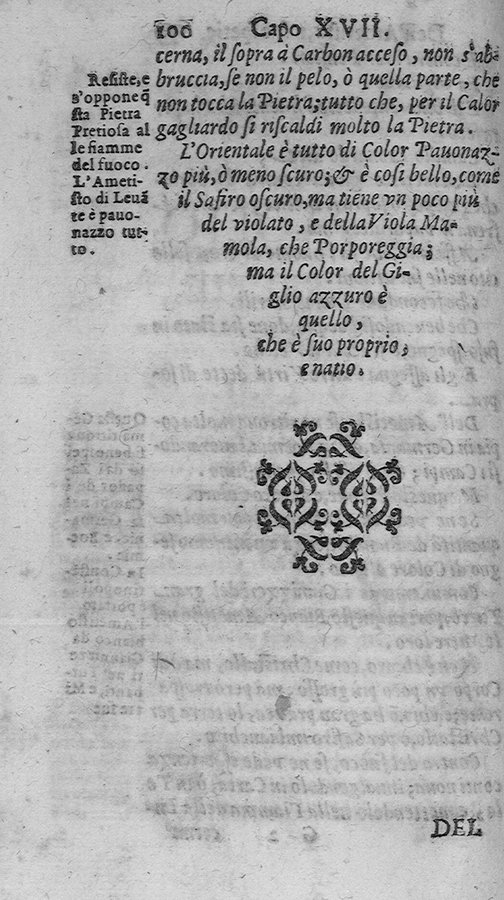 100 Capo XVII.
cerna, il sopra à Carbon acceso, non s'ab-
bruccia, se non il pelo, ò quella parte, che
non tocca la Pietra; tutto che, per il Calor
gagliardo si riscaldi molto la Pietra.
L'Orientale è tutto di Color Pauonaz-
zo più, ò meno scuro; & è così bello, come
il Safiro oscuro, ma tiene vn poco più
del violato, e della Viola Ma-
mola, che Porporeggia;
ma il Color del Gi-
glio azzuro è
quello,
che è suo proprio,
e natio.
Resiste, e
s'oppone q̃
sta Pietra
Pretiosa al
le fiamme
del fuoco.
L'Ameti-
sto di Leuã
te è pauo-
nazzo tut-
to.
DEL